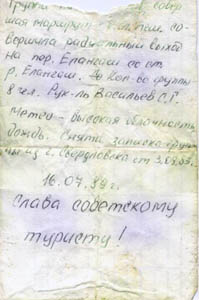 Группа
шая маршрут со-
вершила радиальный выход
на пер. Елангаш со ст.
р. Елангаш. Кол-во группы
8 чел. Рук-ль Васильев С.Г.
Метео - высокая облачность,
дождь. Снята записка группы
из г. Свердловска от
16.07.
Слава советскому
туристу!